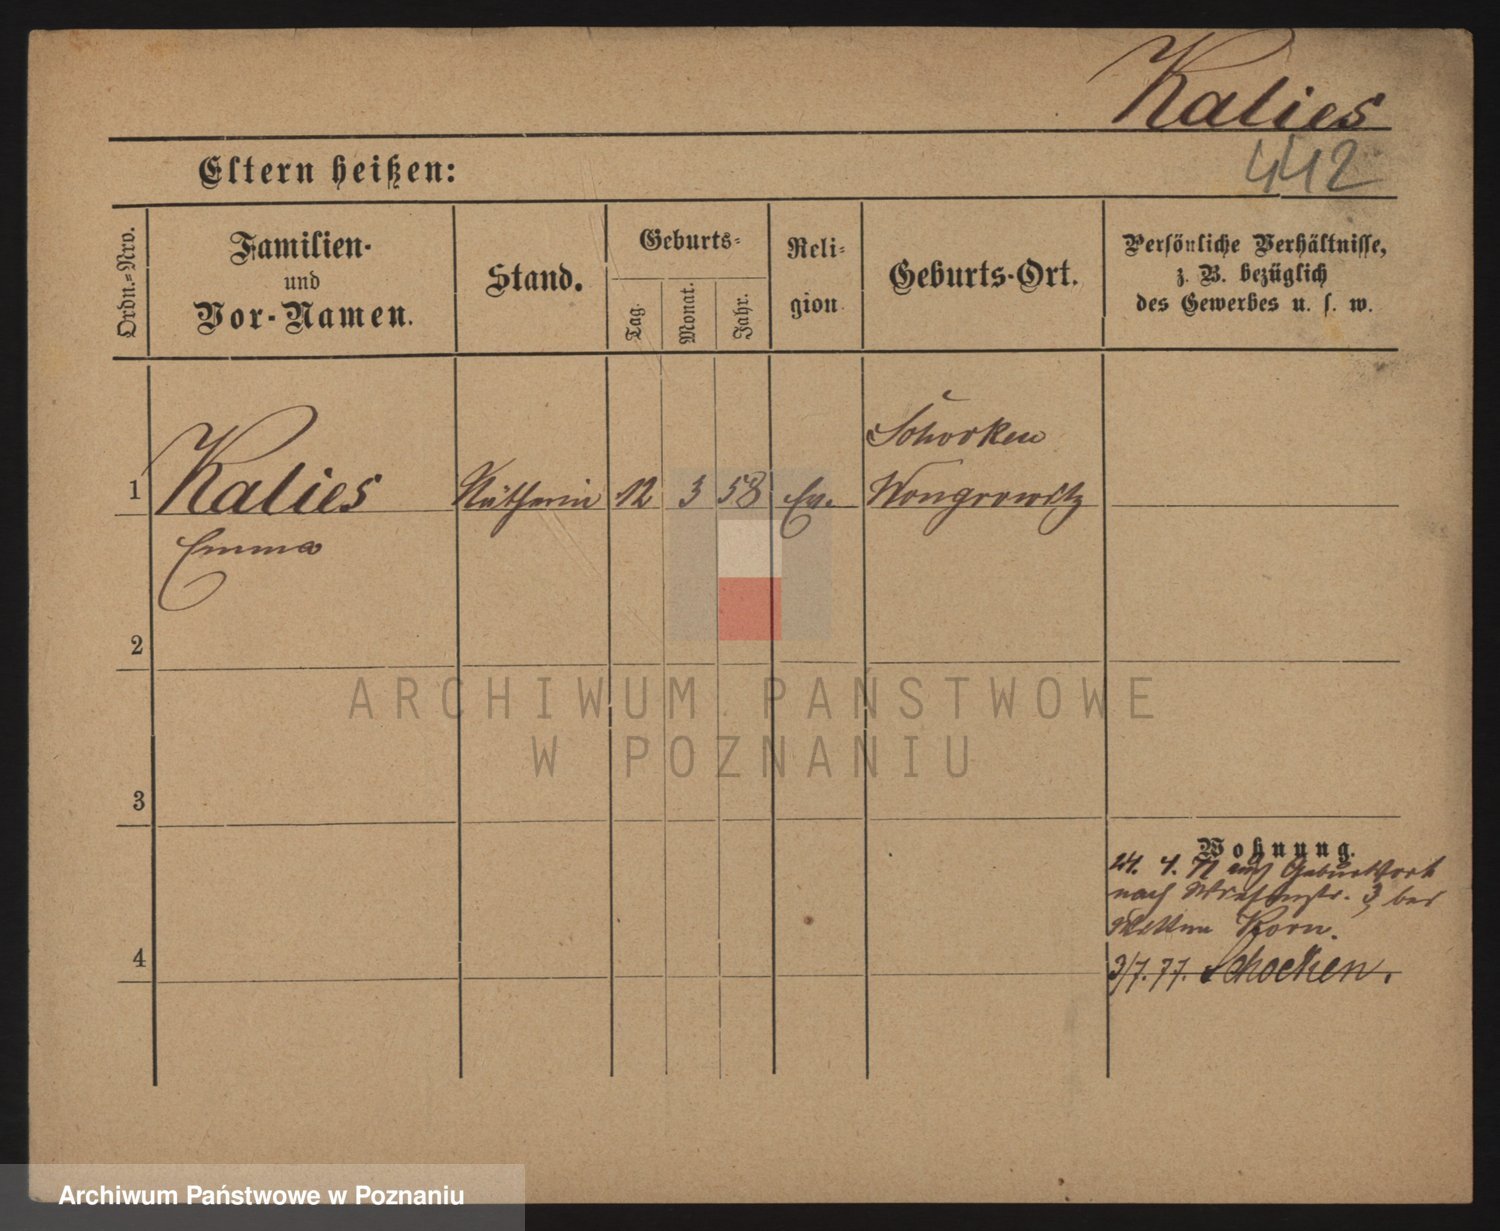 Kalies
442
Eltern heißen:
Ordn.=Nro.
Familien-
und
Vor-Namen.
Stand.
Geburts=
Tag.
Monat.
Jahr.
Reli-
gion
Geburts-Ort.
Persönliche Verhältnisse,
z. B. bezüglich
des Gewerbes u. s. w.
Schocken
1 Kalies Nätherin 12 3 58 Ev. Wongrowitz
Emma
2
ARCHIWUM PAŃSTWOWE
W POZNANIU
3
Wohnung.
24. 4. 77 aus Geburtsort
nach 3 bei
Korn.
4
3/7. 77. Schocken.
Archiwum Państwowe w Poznaniu